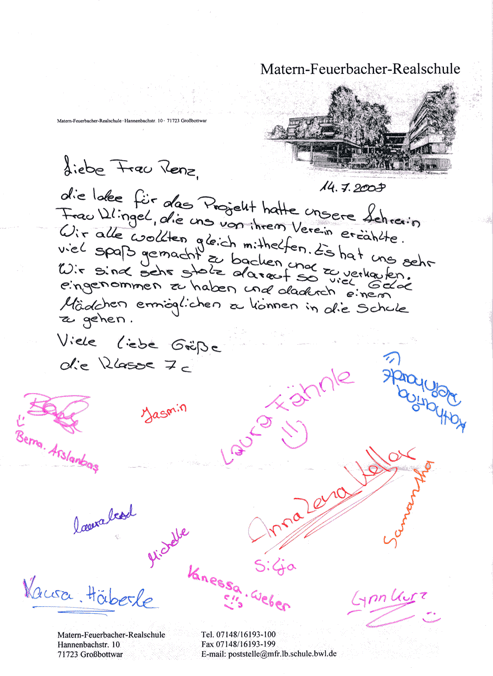 Matern-Feuerbacher-Realschule
Matern-Feuerbacher-Realschule · Hannenbachstr. 10 · 71723 Großbottwar
Liebe Frau Renz,
14.7.2009
die Idee für das Projekt hatte unsere Lehrerin
Frau Klingel, die uns von ihrem Verein erzählte.
Wir alle wollten gleich mithelfen. Es hat uns sehr
viel spaß gemacht zu backen und zu verkaufen.
Wir sind sehr stolz darauf so viel Geld
eingenommen zu haben und dadurch einem
Mädchen ermöglichen zu können in die Schule
zu gehen.
Viele liebe Grüße
die Klasse 7c
Berna. Arslanbaş
Jasmin
Laura Fähnle
Katharina
AnnaLena Keller
Samantha
Michelle
Silja
Vanessa. Weber
Laura. Häberle
Lynn Kurz
Matern-Feuerbacher-Realschule
Hannenbachstr. 10
71723 Großbottwar
Tel. 07148/16193-100
Fax 07148/16193-199
E-mail: poststelle@mfr.lb.schule.bwl.de